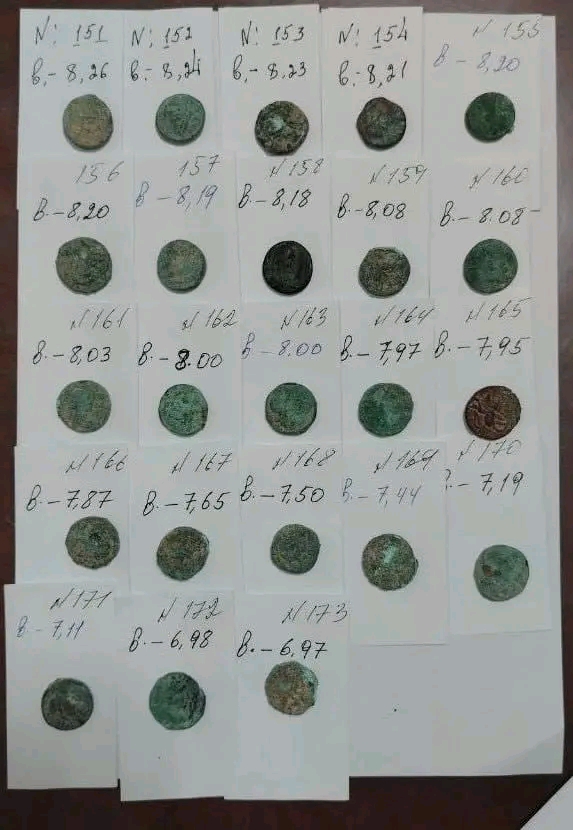 N: 151
в.- 8,26
N: 152
в.- 8,24
N: 153
в,- 8,23
N: 154
в.- 8,21
N 155
в - 8,20
156
в.-8,20
157
в - 8,19
N 158
в.-8,18
N 159
в.-8,08
N 160
в.-8.08-
N 161
в.-8,03
N 162
в.-8.00
N 163
в - 8.00
N 164
в.-7,97
N 165
в.-7,95
N 166
в.-7,87
N 167
в.-7,65
N 168
в.-7,50
N 169
в.-7,44
N 170
-7,19
N 171
в.-7,11
N 172
в.-6,98
N 173
в.-6,97